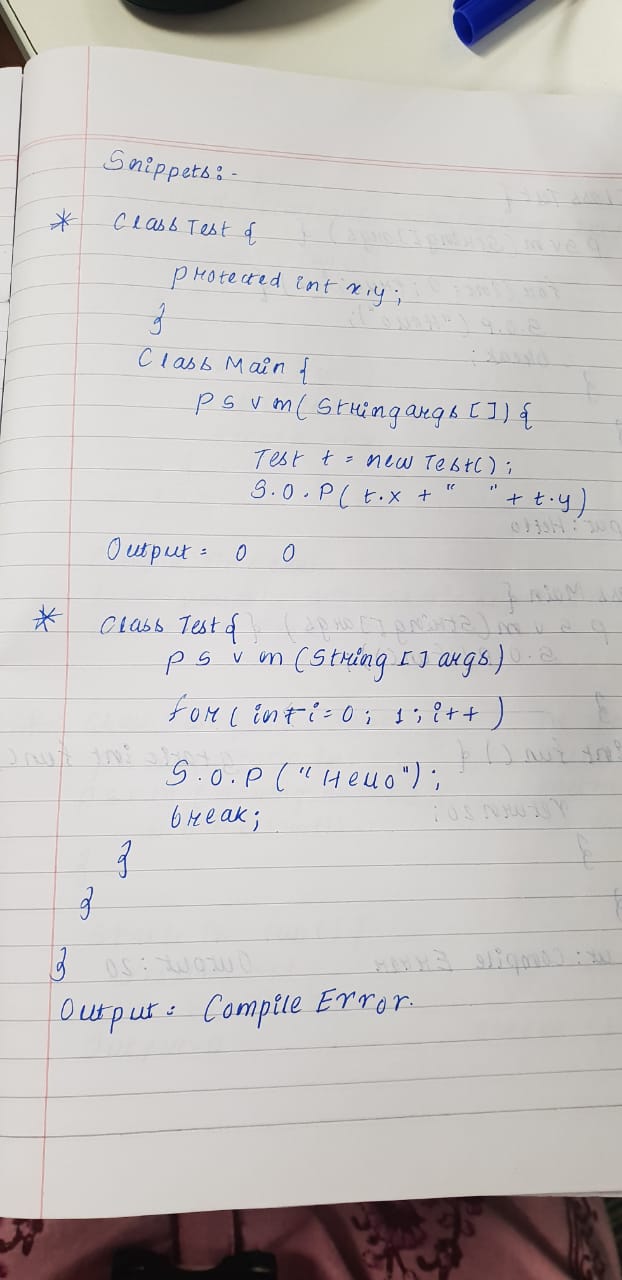 Snippets:-
* Class Test {
protected int x,y;
}
Class Main {
P S V m( String args []) {
Test t = new Test();
S.O.P( t.x + " " + t.y)
Output = 0 0
* Class Test {
P S V m (String [] args)
for( int i=0; 1; i++ )
S.O.P ("Hello");
break;
}
}
}
Output = Compile Error.